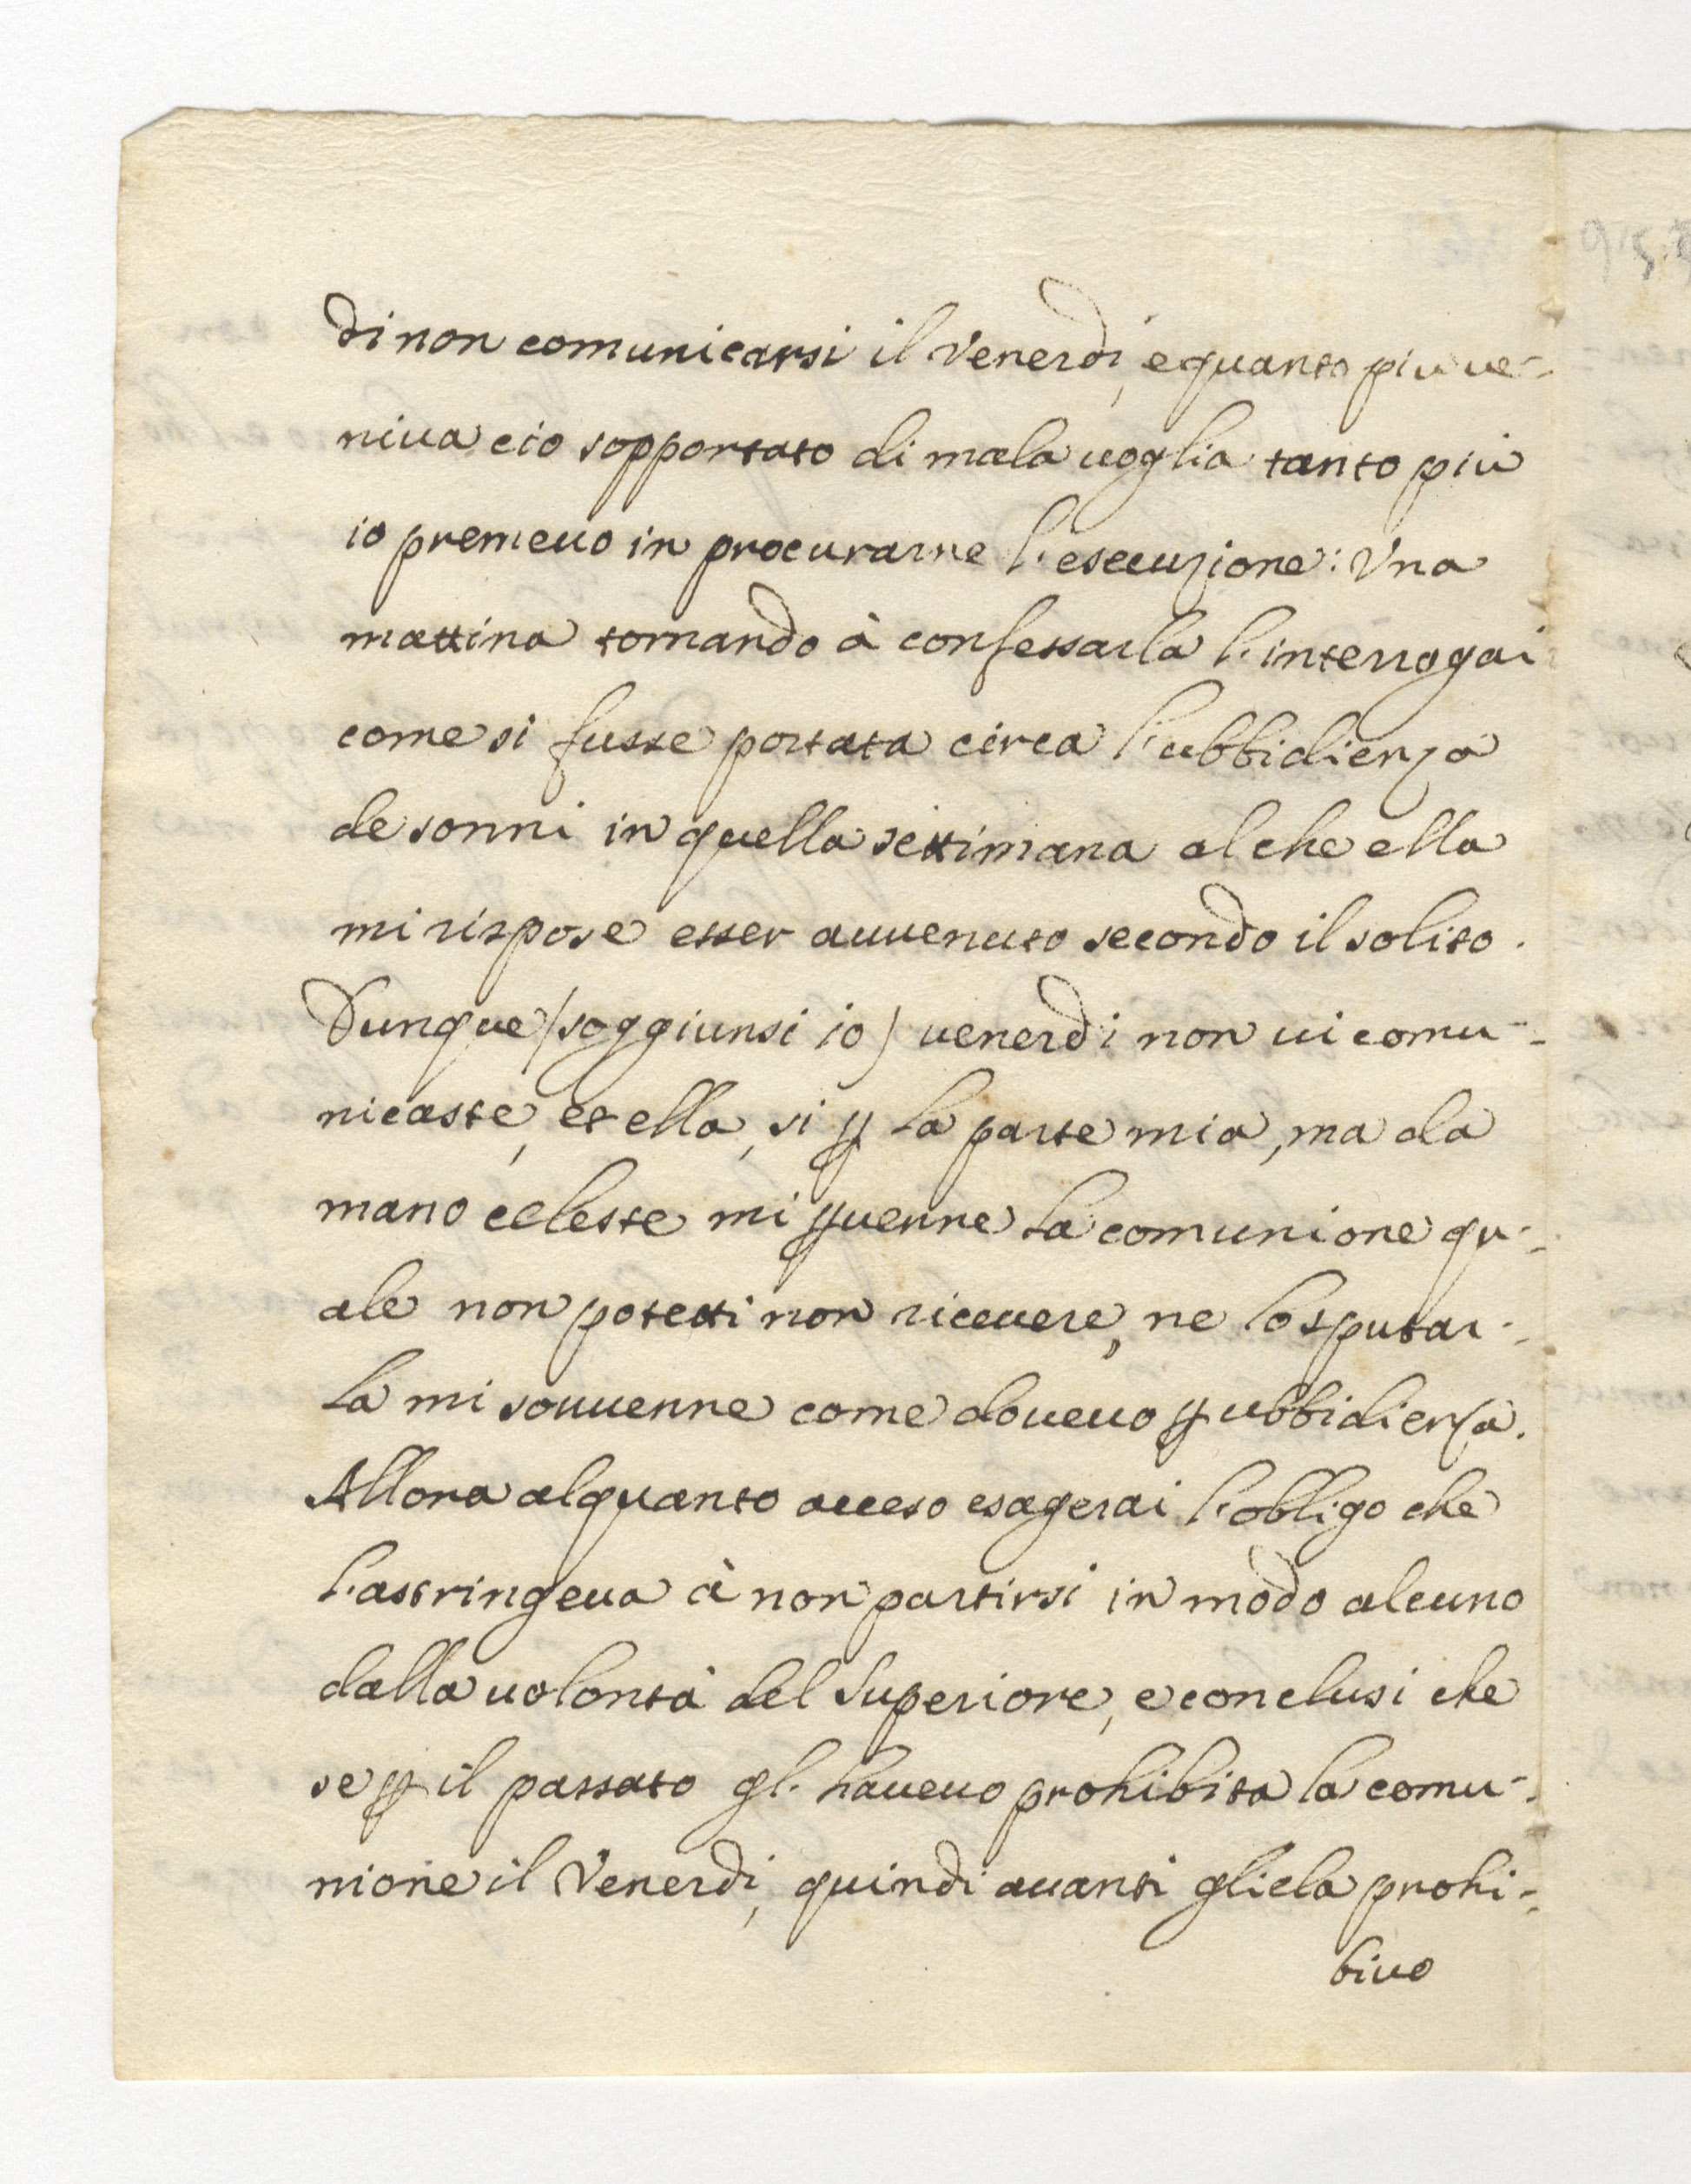 di non comunicarsi il Venerdi, e quanto piu ue-
niua cio sopportato di mala uoglia tanto più
io premeuo in procurarne l'esecuzione: Vna
mattina tornando à confessarla l'interrogai
come si fusse portata circa l'ubbidienza
de sonni in quella settimana al che ella
mi rispose esser auuenuto secondo il solito.
Dunque (soggiunsi io) uenerdi non ui comu-
nicaste, et ella, si ꝑ la parte mia, ma da
mano celeste mi ꝑuenne la comunione qu-
ale non potetti non riceuere, ne lo sputar-
la mi souuenne come doueuo ꝑ ubbidienza.
Allora alquanto acceso esagerai l'obligo che
l'astringeua à non partirsi in modo alcuno
dalla uolontà del Superiore, e conclusi che
se ꝑ il passato gl' haueuo prohibita la comu-
nione il Venerdi, quindi auanti gliela prohi-
biuo